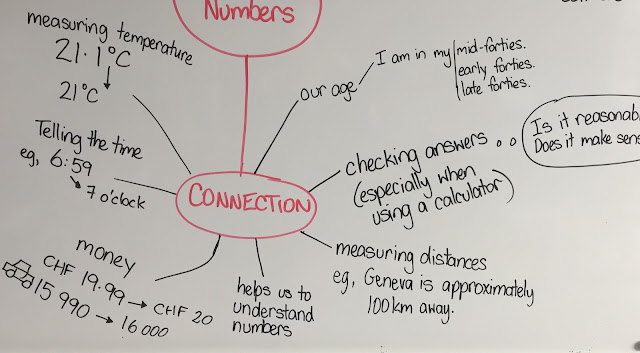 Numbers
measuring temperature
21.1°C
21°C
our age
I am in my mid-forties.
early forties.
late forties.
Telling the time
eg, 6:59
7 o'clock
CONNECTION
checking answers
(especially when
using a calculator)
Is it
Does it make
money
CHF 19.99 → CHF 20
15 990 → 16 000
helps us to
understand
numbers
measuring distances
eg, Geneva is approximately
100km away.